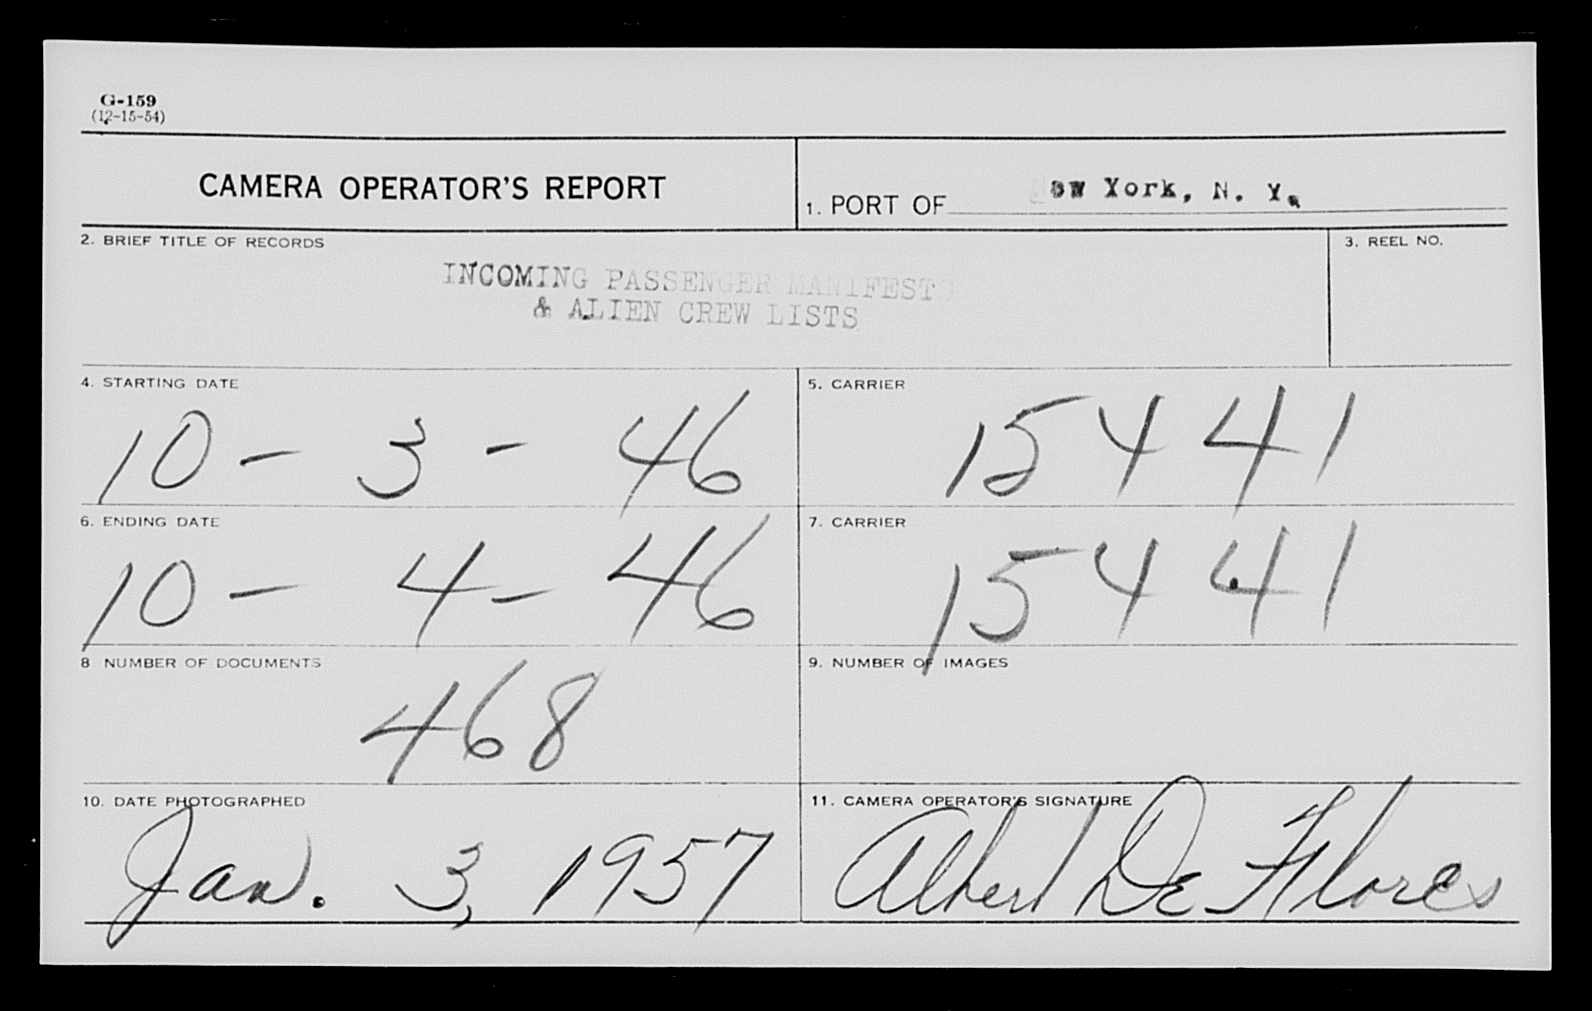 G-159
(12-15-54)
CAMERA OPERATOR'S REPORT
1. PORT OF New York, N. Y.
2. BRIEF TITLE OF RECORDS
INCOMING PASSENGER MANIFESTS
& ALIEN CREW LISTS
3. REEL NO.
4. STARTING DATE
10 - 3 - 46
5. CARRIER
15441
6. ENDING DATE
10 - 4 - 46
7. CARRIER
15441
8 NUMBER OF DOCUMENTS
468
9. NUMBER OF IMAGES
10. DATE PHOTOGRAPHED
Jan. 3, 1957
11. CAMERA OPERATOR'S SIGNATURE
Albert De Flores